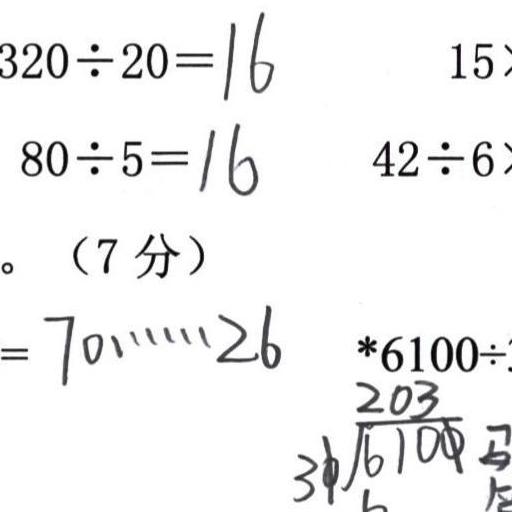 320÷20=16 15×
80÷5=16 42÷6×
。（7分）
=70……26 *6100÷
203
30 6100
6